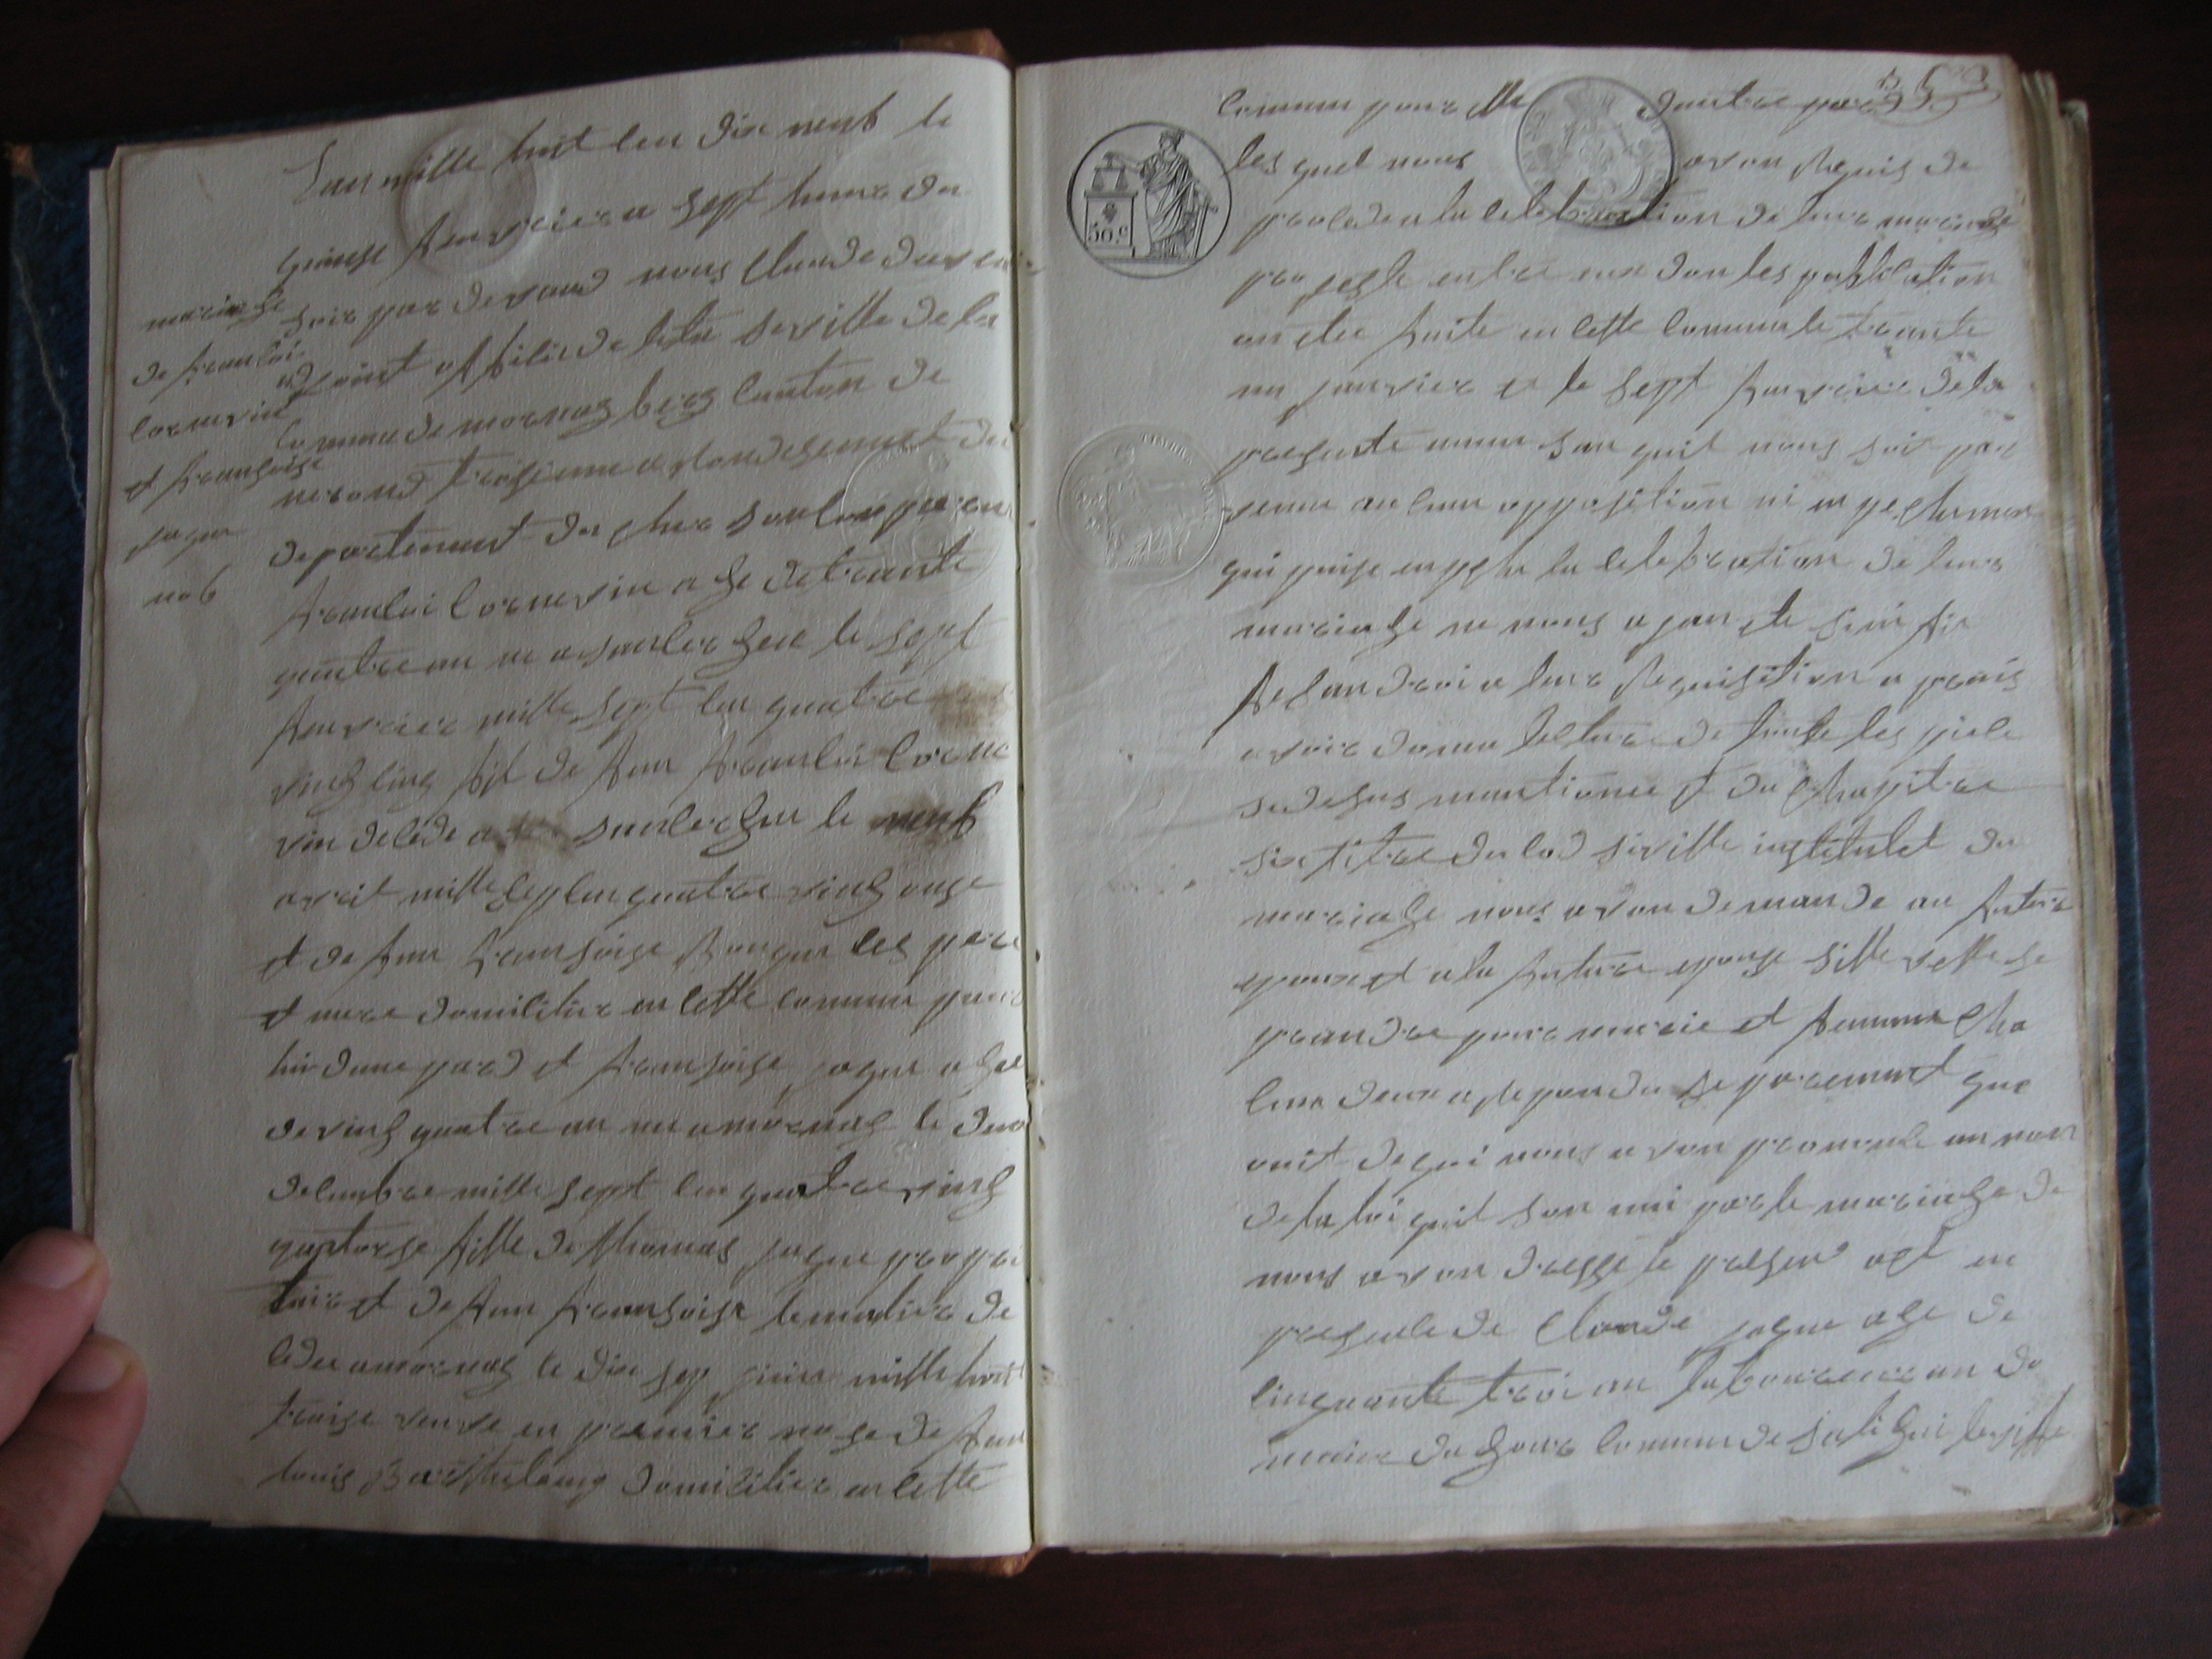 Lan mille huit cen dix neuf le
quinse feuvrier a sept heure du
soir par devand nous Claude
adjoint officié de leta seville de la
commune de mornay berg canton de
nerond troisieme arondesement du
departement du cher son
francoi cornevin age de trante
quatre an ne a sancergeu le sept
feuvrier mille sept cen quatre
ving cinq fil de feu francoi corne
vin decede a sancergeu le neuf
avril mille sept cen quatre ving onze
et de feu fransoise les pere
et mere domicilier en cette comune
dune pard et fransoise jaque agee
de ving quatre an ne a mornay le deux
decembre mille sept cen quatre ving
quatorse fille de thomas jaque propri
taire et de feu fransoise de
cedee a mornay le dix sep juin mille huit
treise veuve en premier nose de feu
louis domicilier en cette
mariage
de francoi
cornevin
et fransoise
jaque
no 6
comune pour elle dautre pard
les quel nous avon requis de
procede a la celebration de leur mariage
projesté entre eux don les publication
on etee faite en cette comune le trante
un janvier et le sept feuvrier de la
presente annee san quil nous soit par
venu aucune opposition ni enpechemen
qui puise enpeche la celebration de leurs
mariage ne nous ayan ete sinifie
fesan droi a leur requisition a preis
avoir donne lecture de toute les piece
sidesus mantionee et du chapitre
six titre du cod seville instetulet du
mariage nous avon demande au future
epoux et a la future epouse sille velle se
prandre pour marie et femme cha
cun deux a repondu separement que
ouit de qui nous avon prononcé au non
de la loi quil son uni par le mariage de
nous avon dresse le presen act en
presence de Claude jaque age de
cinquante troi an laboureur
50.c